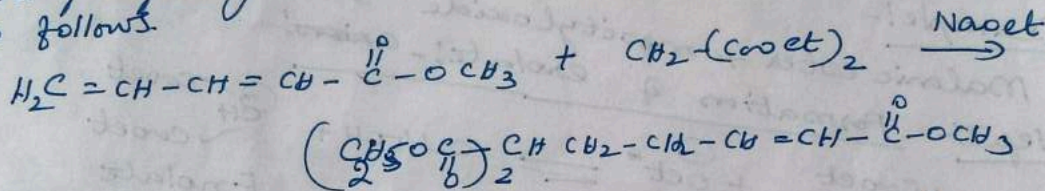 follows.
H₂C = CH - CH = CH - C(=O) - OCH₃ + CH₂-(COOEt)₂ NaOEt →
(C₂H₅O C(=O))₂ - CH CH₂ - CH₂ - CH = CH - C(=O) - OCH₃.